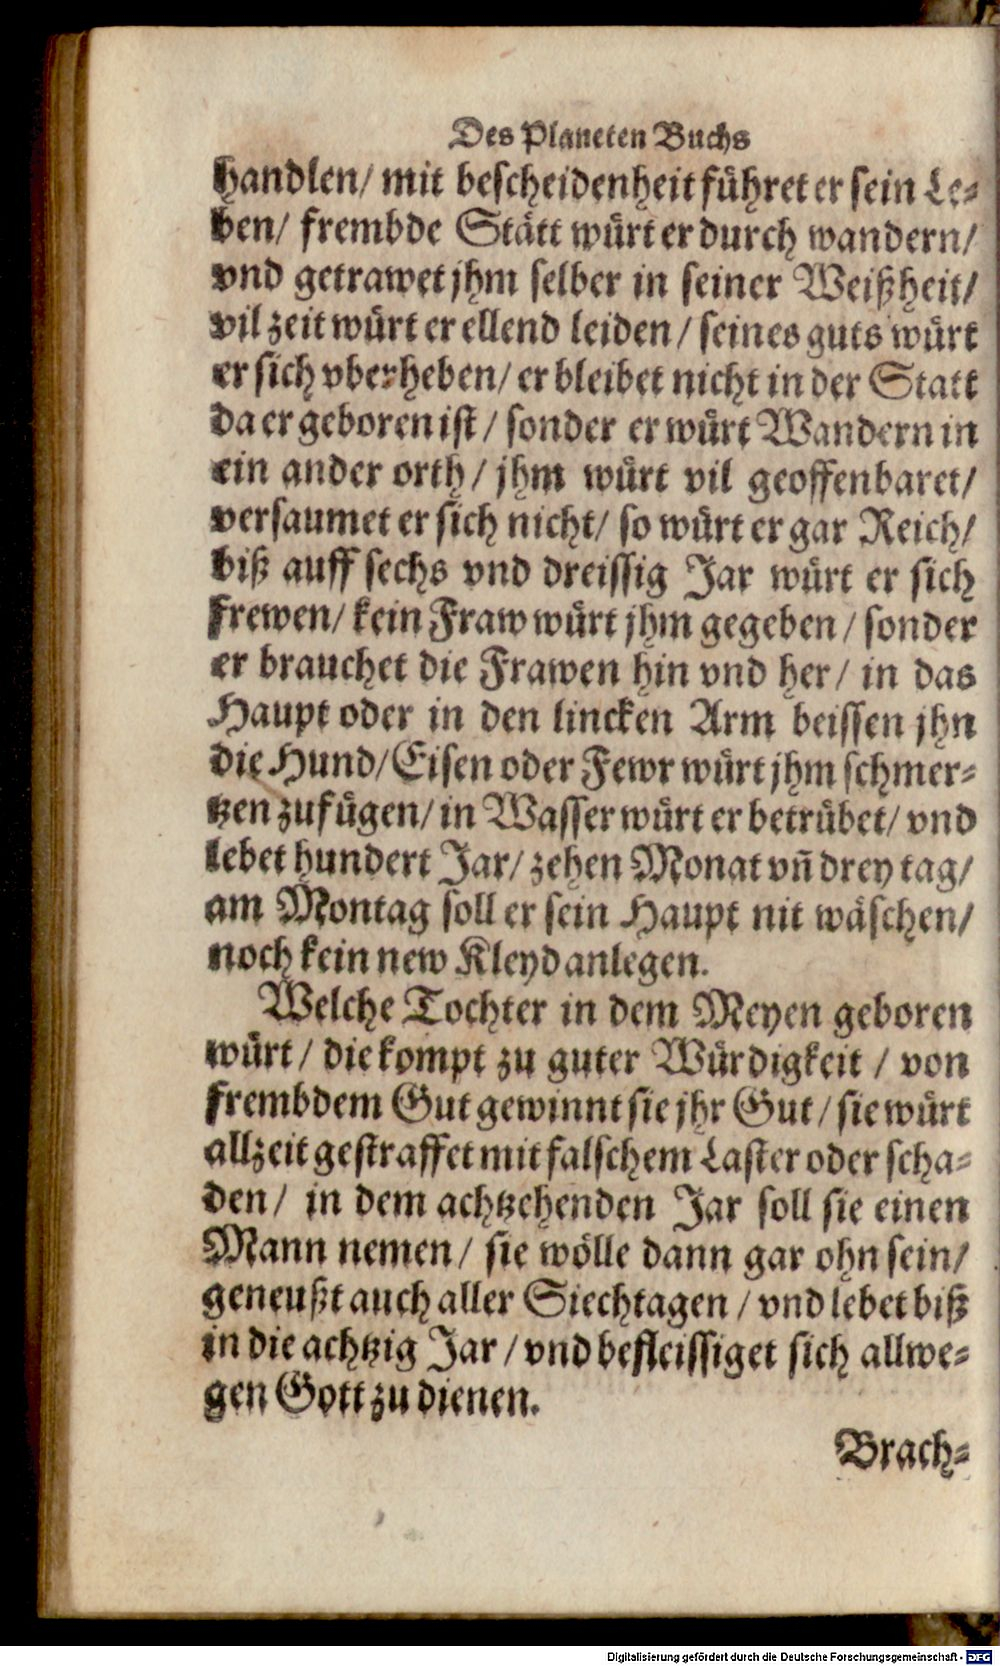 Des Planeten Buchs
handlen/ mit bescheidenheit führet er sein Le⸗
ben/ frembde Stätt würt er durch wandern/
vnd getrawet jhm selber in seiner Weißheit/
vil zeit würt er ellend leiden / seines guts würt
er sich vberheben/ er bleibet nicht in der Statt
da er geboren ist / sonder er würt Wandern in
ein ander orth / jhm würt vil geoffenbaret/
versaumet er sich nicht/ so würt er gar Reich/
biß auff sechs vnd dreissig Jar würt er sich
frewen/ kein Fraw würt jhm gegeben / sonder
er brauchet die Frawen hin vnd her/ in das
Haupt oder in den lincken Arm beissen jhn
die Hund/ Eisen oder Fewr würt jhm schmer⸗
tzen zufügen/ in Wasser würt er betrübet/ vnd
lebet hundert Jar/ zehen Monat vñ drey tag/
am Montag soll er sein Haupt nit wäschen/
noch kein new Kleyd anlegen.
Welche Tochter in dem Meyen geboren
würt / die kompt zu guter Würdigkeit / von
frembdem Gut gewinnt sie jhr Gut / sie würt
allzeit gestraffet mit falschem Laster oder scha⸗
den/ in dem achtzehenden Jar soll sie einen
Mann nemen/ sie wölle dann gar ohn sein/
geneußt auch aller Siechtagen / vnd lebet biß
in die achtzig Jar / vnd befleissiget sich allwe⸗
gen Gott zu dienen.
Brach⸗
Digitalisierung gefördert durch die Deutsche Forschungsgemeinschaft - DFG